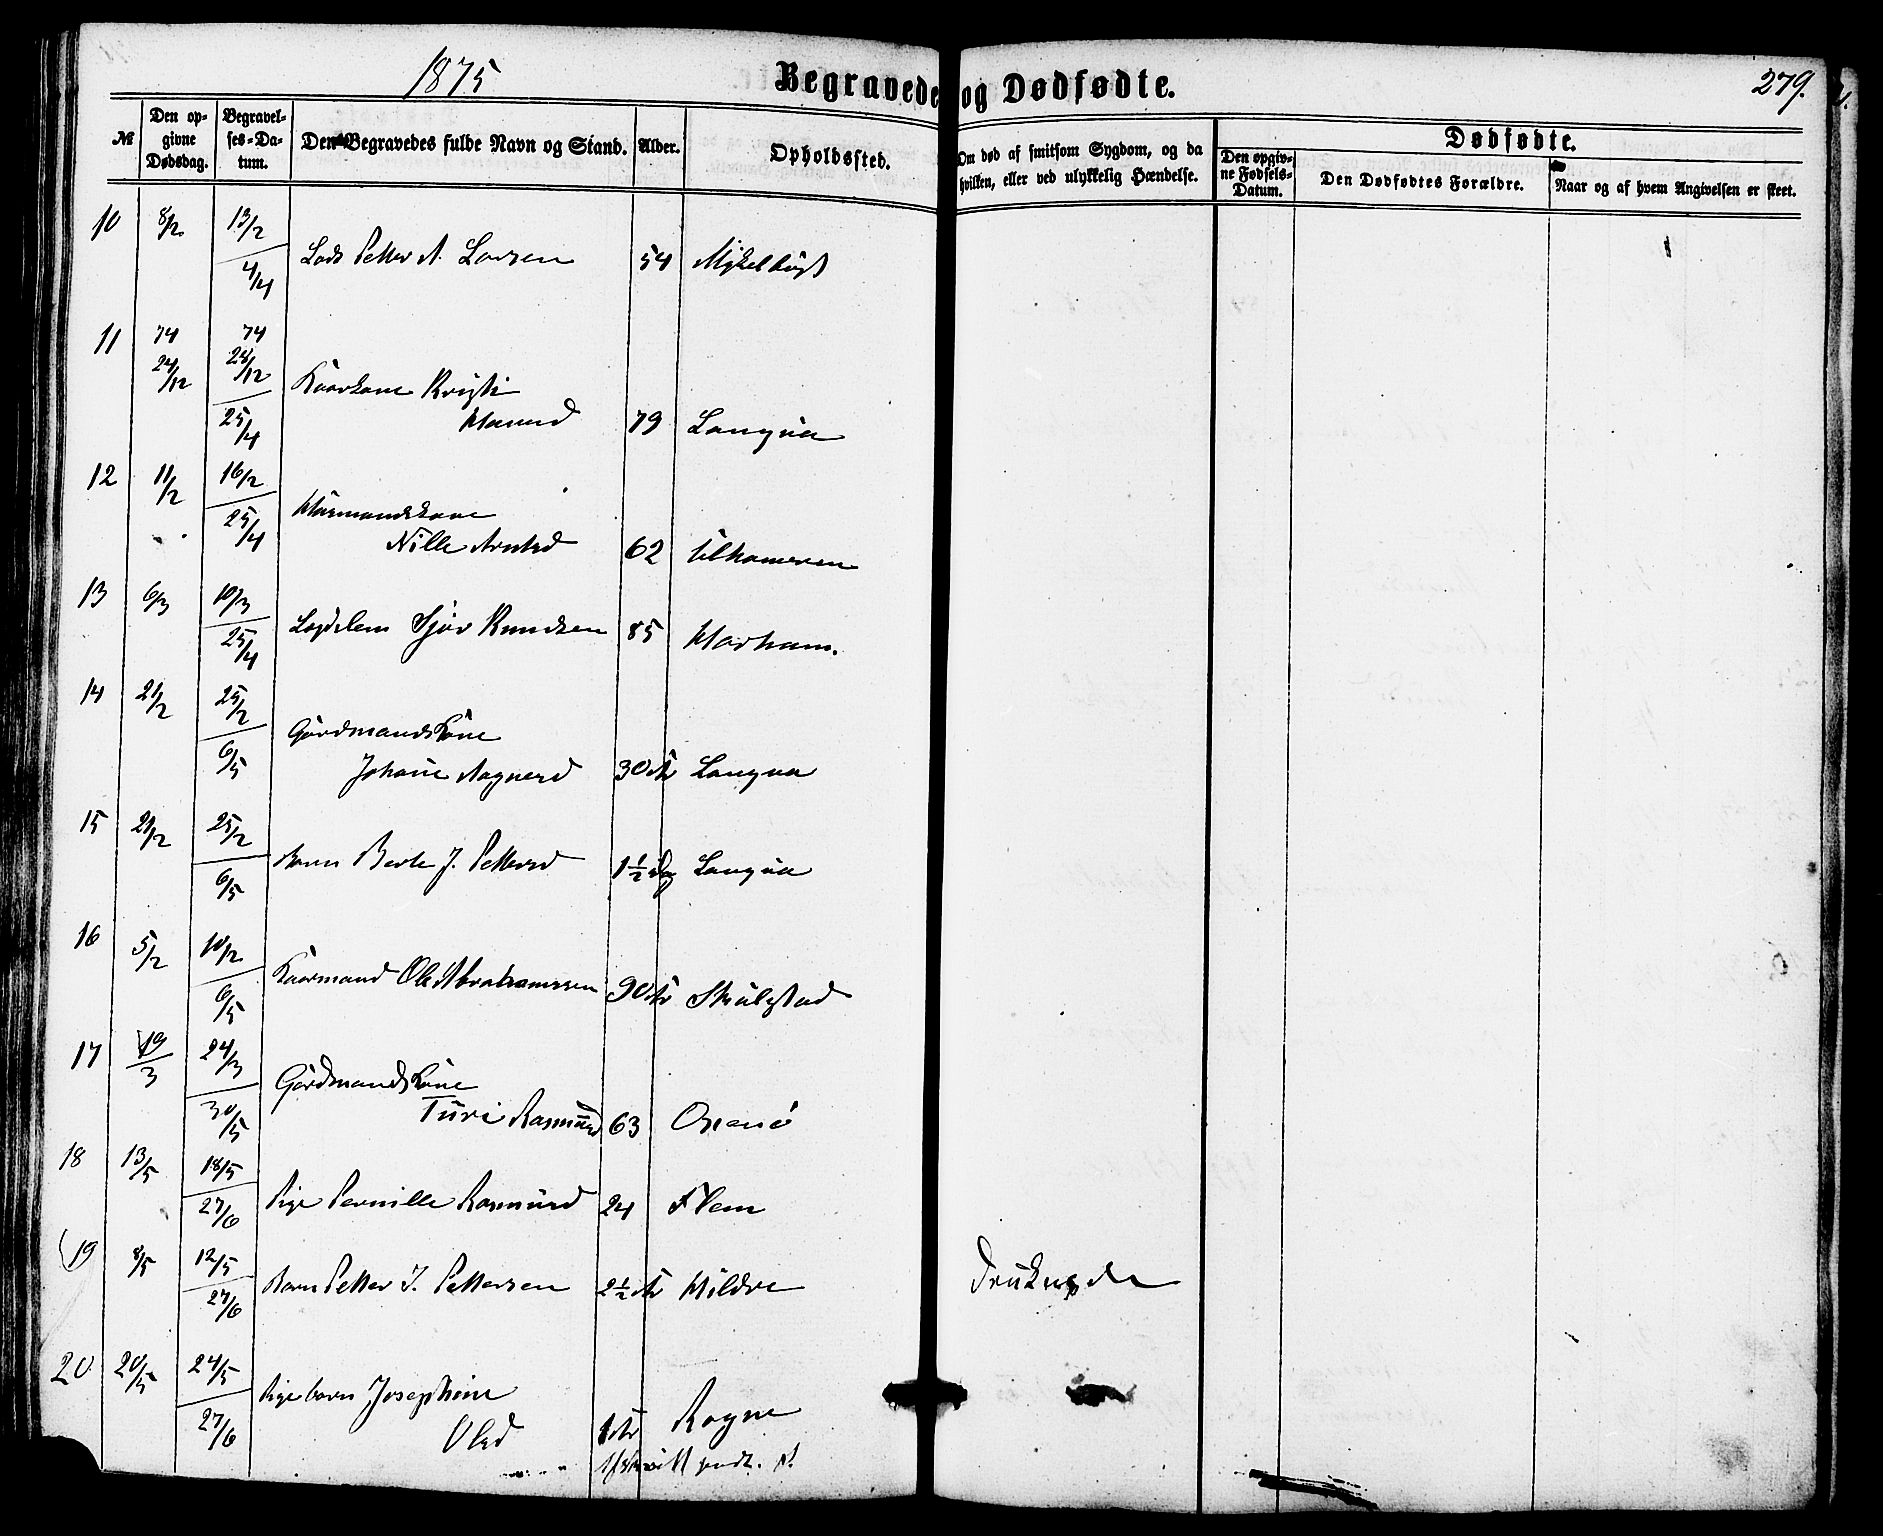 1875
Begravede og Dødfødte.
279.
№
Den opgivne Dødsdag.
Begravelses-Datum.
Den Begravedes fulde Navn og Stand.
Alder.
Opholdssted.
Om død af smitsom Sygdom, og da hvilken, eller ved ulykkelig Hændelse.
Dødfødte.
Den opgivne Fødsels-Datum.
Den Dødfødtes Forældre.
Naar og af hvem Angivelsen er skeet.
10 8/2 13/2
4/4 Petter A. Larsen 54
11 74 74
24/12 28/12 Kaarkone
25/4 79 Langva
12 11/2 16/2
25/4 Husmandskone
Nille 62 Ulhameren
13 6/3 10/3
25/4 Sjur Knudsen 85 Harham.
14 21/2 25/2
6/5 Gårdmandskone
30 År Langva
15 21/2 25/2
6/5 Barn Berte J. Pettersd 1½ Dag Langva
16 5/2 10/2
6/5 Kaarmand Ole Abrahamssen 90 År Skulstad
17 19/3 24/3
30/5 Gårdmandskone
Turi Rasmusd 63
18 13/5 18/5
27/6 Pige Pernille Rasmusd 24 Flem
19 8/5 12/5
27/6 Barn Petter J. Pettersen 2½ År Hildre
20 20/5 24/5
27/6 Pigebarn Josephine
Olsd 1 År Rogne